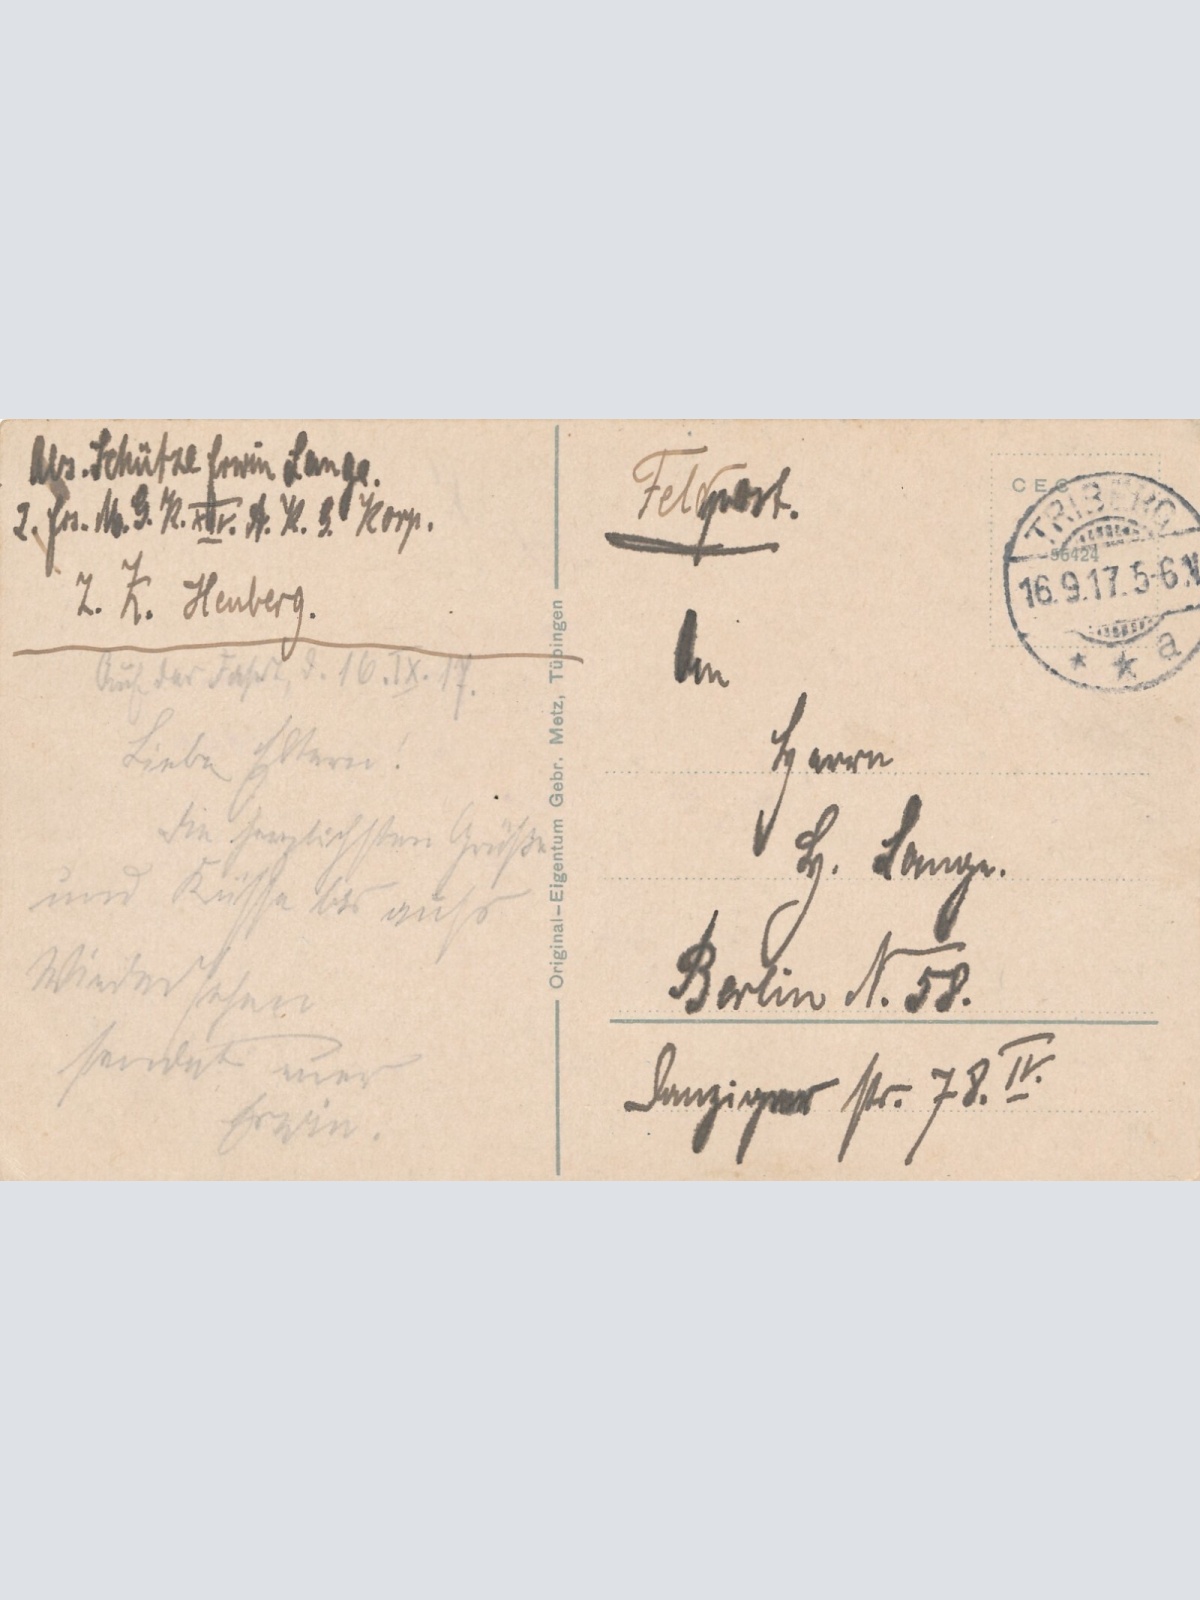 Abs. Schütze Erwin Lange.
2. Ers. M. G. K. XIV. A. K. 3 Korp.
Z. Z. Heuberg.
Auf der Fahrt, d. 16.IX.17.
Liebe Eltern!
Die herzlichsten Grüße
und Küsse bis aufs
Wiedersehen
sendet euer
Erwin.
Original-Eigentum Gebr. Metz, Tübingen
Feldpost.
CEG
56424
TRIBERG
16.9.17.5-6.N
* * a
An
Herrn
H. Lange.
Berlin N. 58.
Danziger Str. 78. IV.